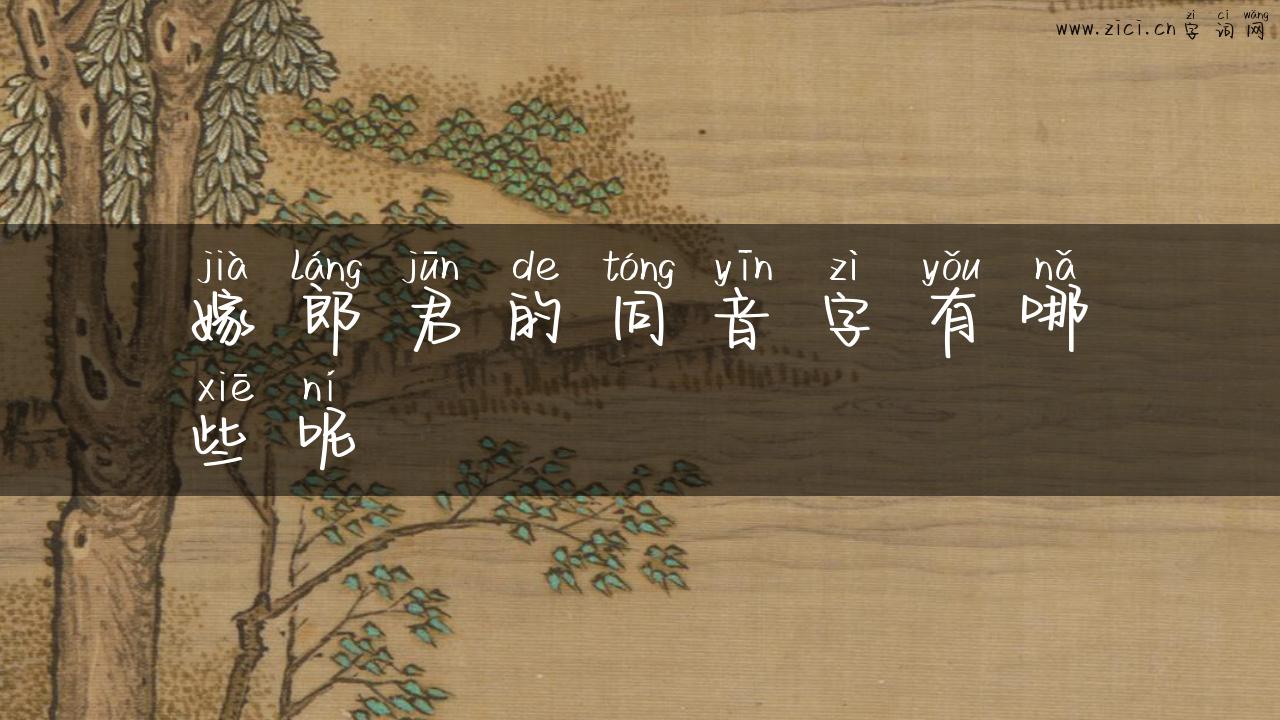 zì cí wǎng
www.zici.cn 字词网
jià láng jūn de tóng yīn zì yǒu nǎ
嫁郎君的同音字有哪
xiē ní
些呢